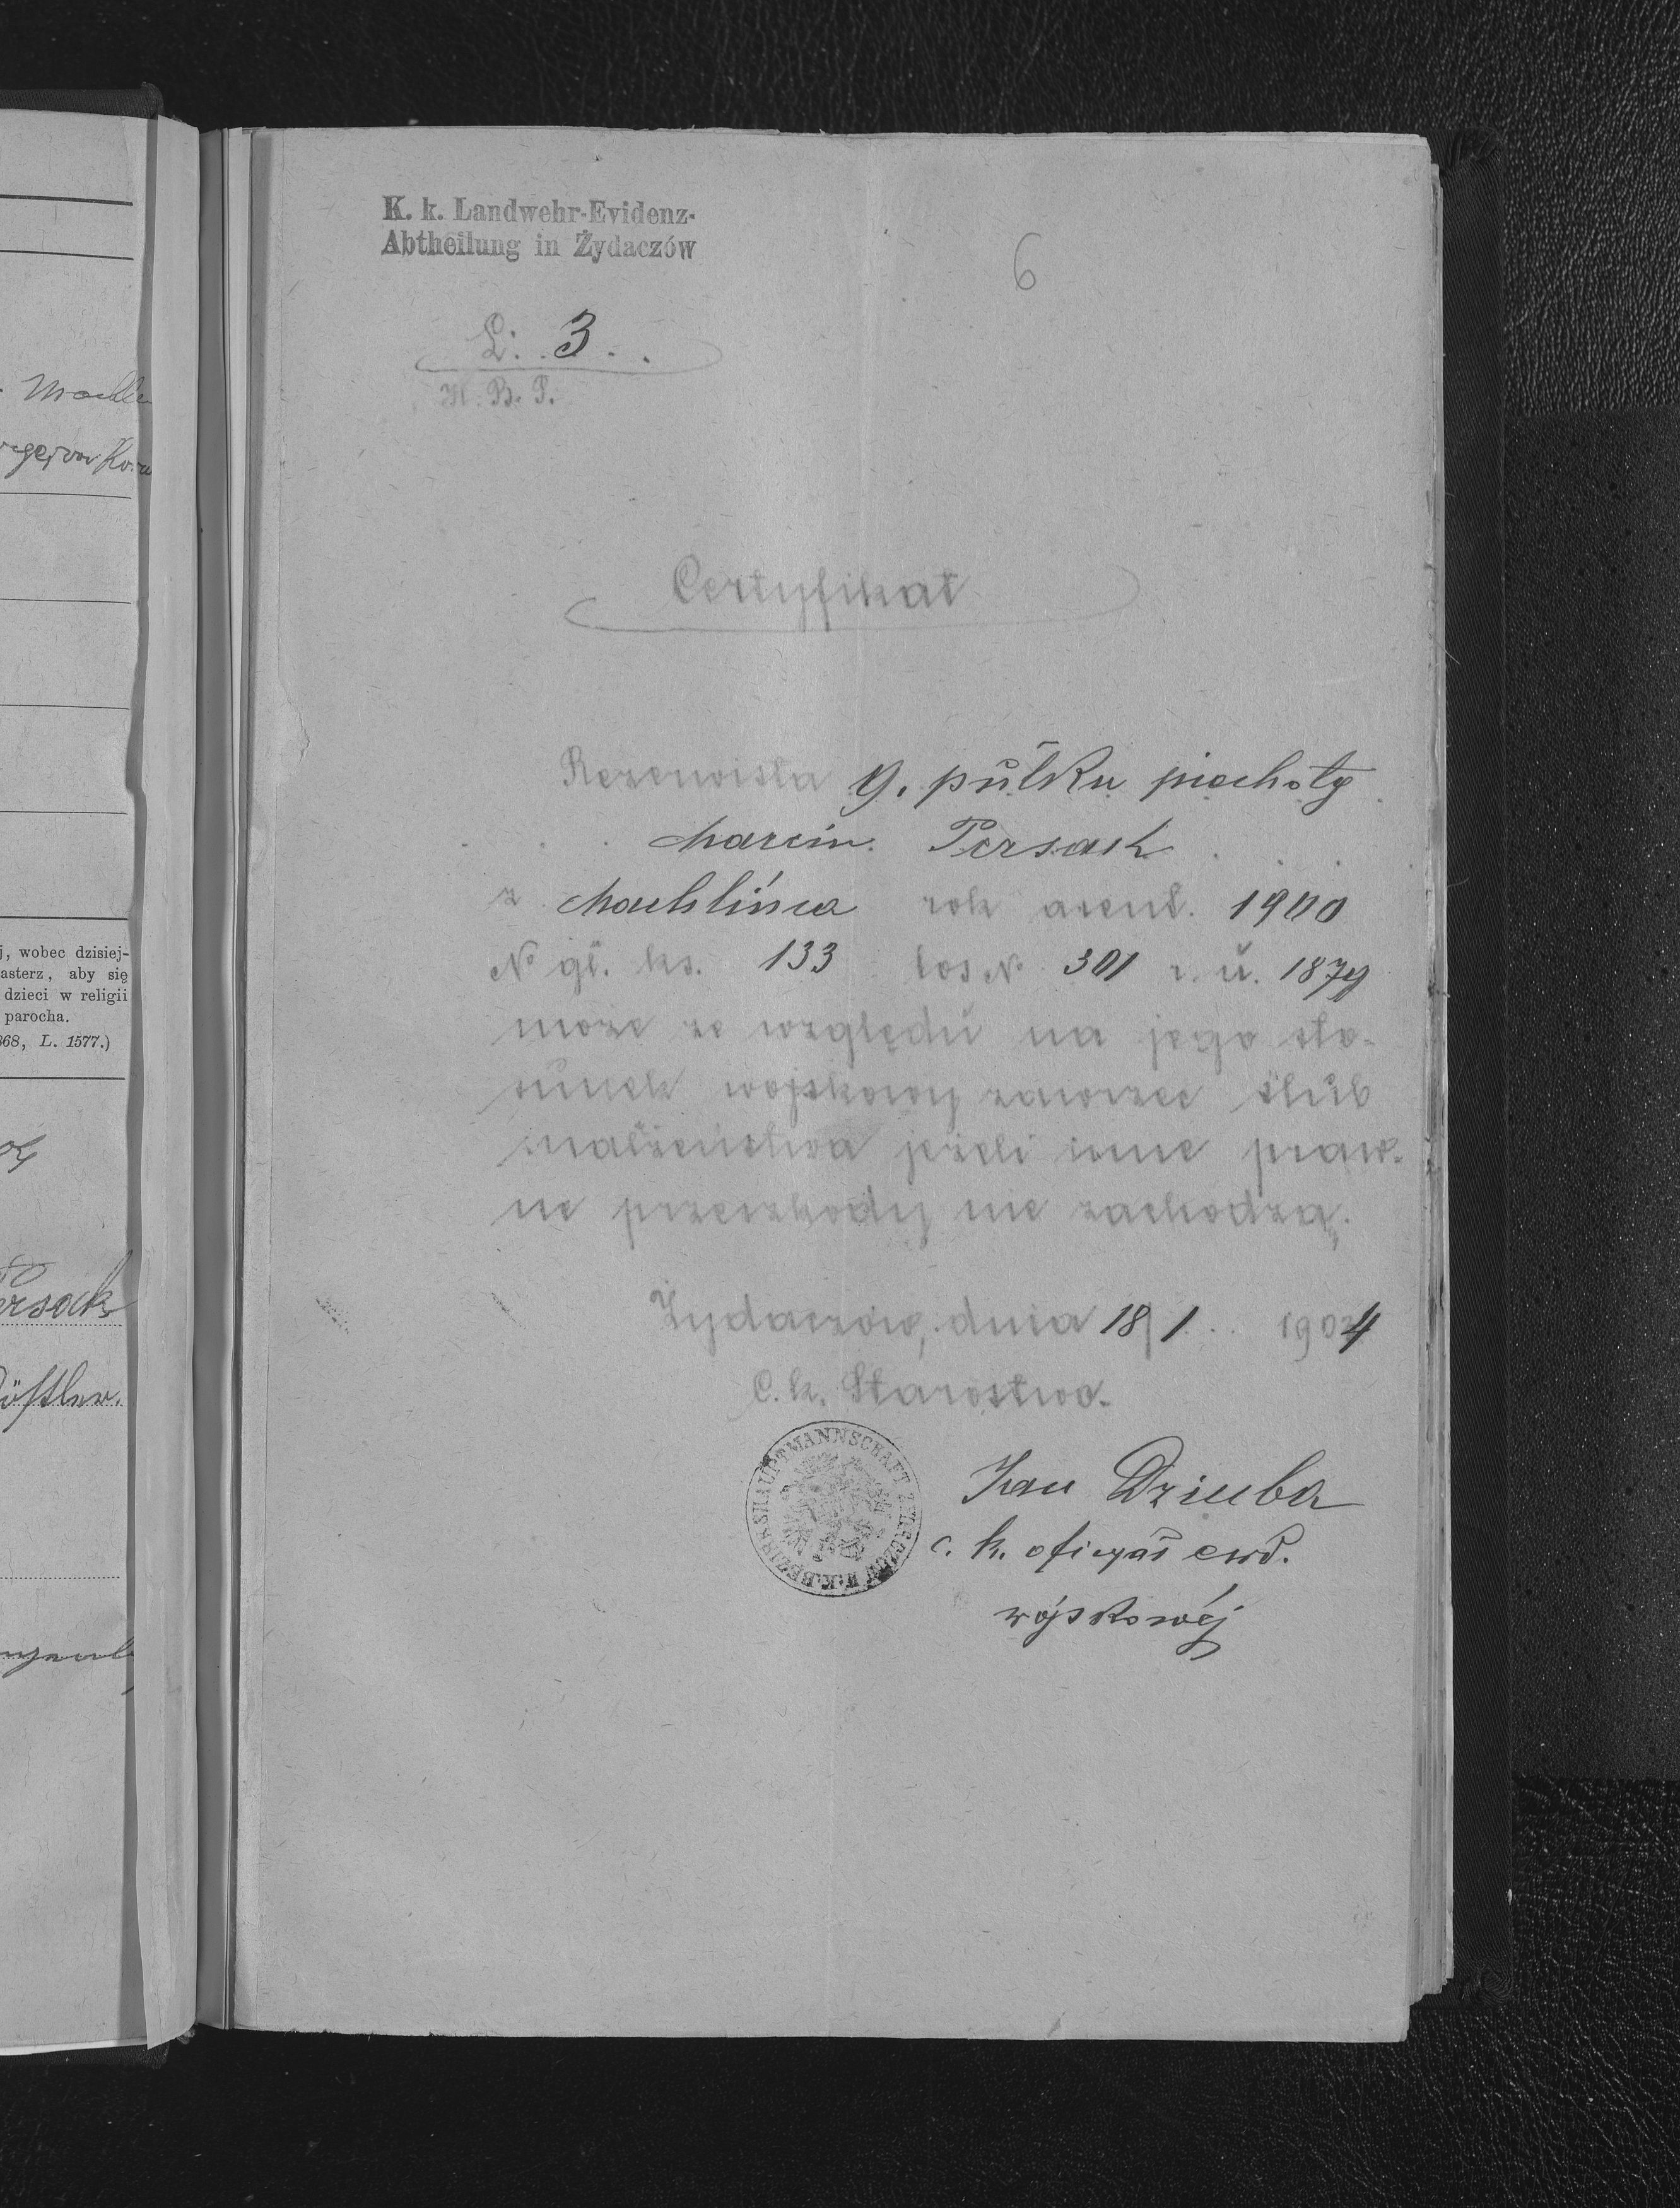 K. k. Landwehr-Evidenz-
Abtheilung in Żydaczów
6
L: 3
K. B. P.
Certyfikat
Rezerwista 9. pułku piechoty
Marcin Persak
z Machlińca rok asent. 1900
No gł. ks. 133 los No 301 r. u. 1879
może ze względu na jego sto-
sunek wojskowy zawrzec ślub
małżeństwa jeżeli inne praw-
ne przeszkody nie zachodzą.
Żydaczów, dnia 18/1 1904
C. k. Starostwo.
K.K. BEZIRKSHAUPTMANNSCHAFT ŻYDACZÓW
Jan Dziuba
c. k. oficyał ewd.
wójskowéj
j, wobec dzisiej-
asterz, aby się
dzieci w religii
parocha.
868, L. 1577.)
ersack